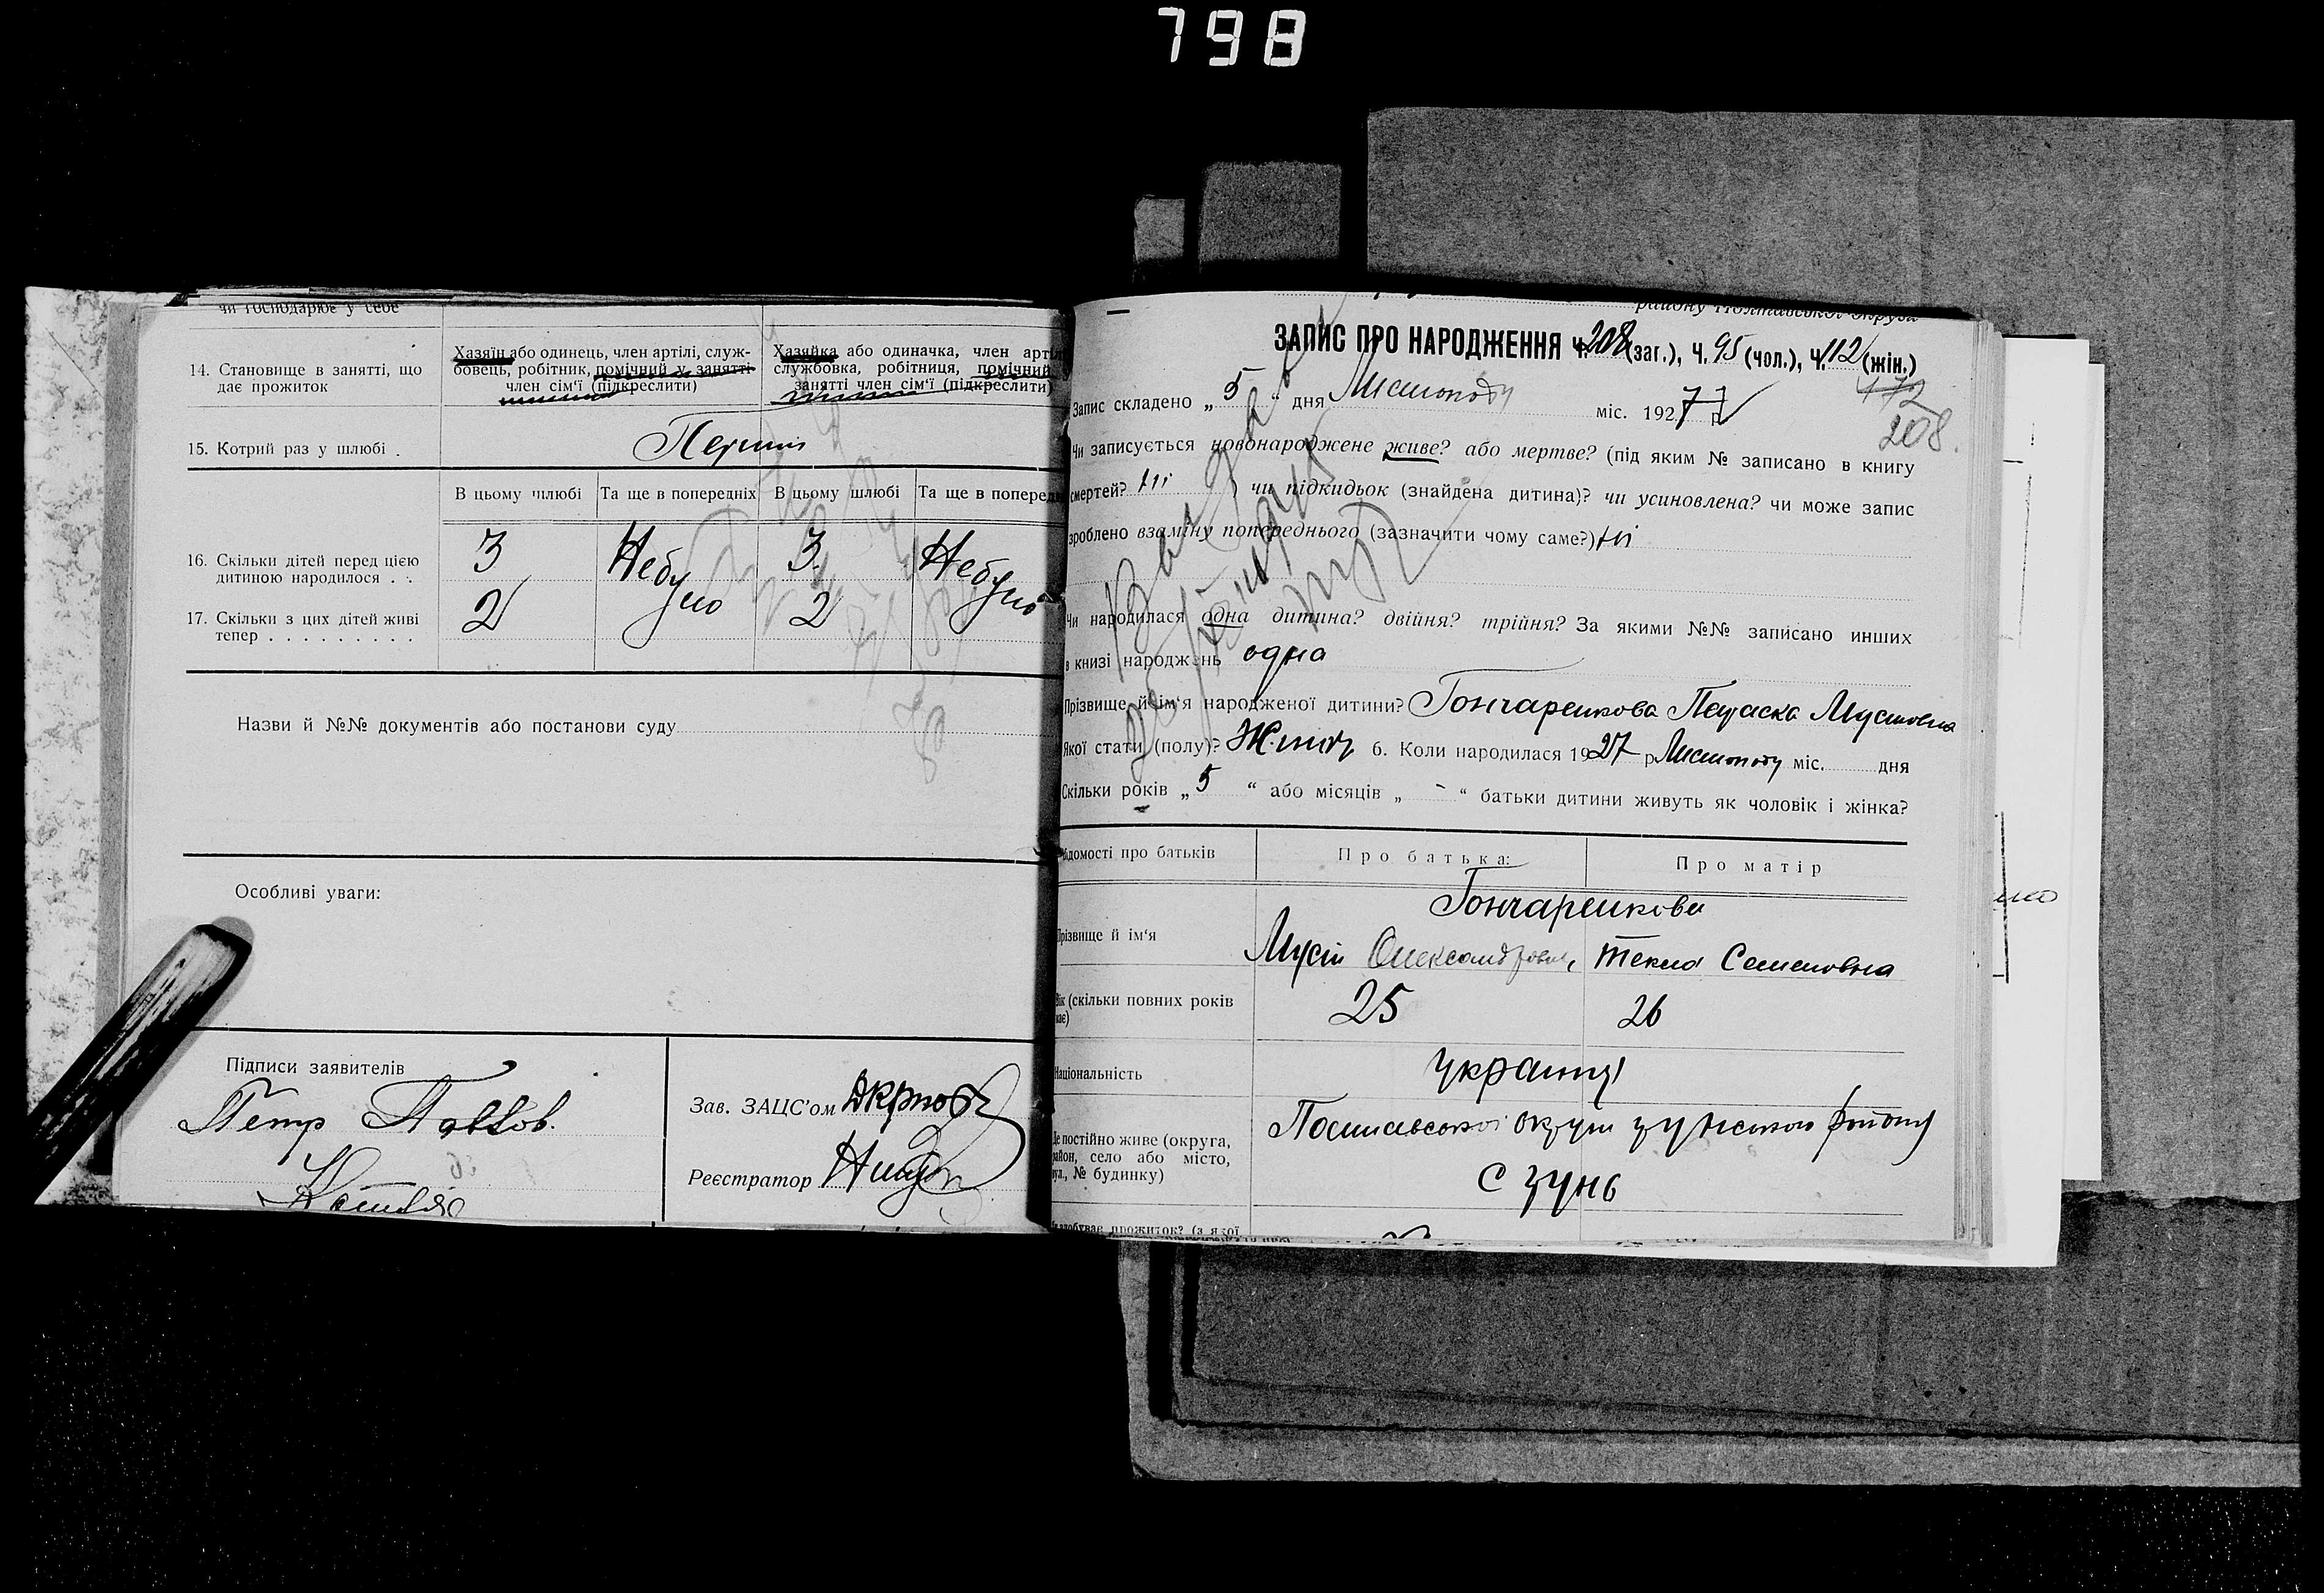 798
чи господарює у себе
14. Становище в занятті, що дає прожиток
Хазяїн або одинець, член артілі, служ-
бовець, робітник, помічний у занятті
член сім'ї (підкреслити)
Хазяйка або одиначка, член артіл
службовка, робітниця, помічний
занятті член сім'ї (підкреслити)
15. Котрий раз у шлюбі .
В цьому шлюбі Та ще в попередніх В цьому шлюбі Та ще в поперед
16. Скільки дітей перед цією
дитиною народилося . . 3 Небуло 3 Небуло
17. Скільки з цих дітей живі
тепер . . . . . . . . . 2 2
Назви й №№ документів або постанови суду
Особливі уваги:
Підписи заявителів
Петр
Зав. ЗАЦС'ом
Реєстратор
району Полтавської округи
ЗАПИС ПРО НАРОДЖЕННЯ Ч. 208 (заг.), Ч. 95 (чол.), Ч. 112 (жін.)
172
208
Запис складено „ 5 “ дня Листопаду міс. 1927 р
Чи записується новонароджене живе? або мертве? (під яким № записано в книгу
смертей? Ні ) чи підкидьок (знайдена дитина)? чи усиновлена? чи може запис
зроблено взаміну попереднього (зазначити чому саме?) Ні
Чи народилася одна дитина? двійня? трійня? За якими №№ записано инших
в книзі народжень одна
Прізвище й ім'я народженої дитини? Гончаренкова Параска Мусіовна
Якої стати (полу)? 6. Коли народилася 1927 р Листопаду міс. дня
Скільки років „ 5 “ або місяців „ - “ батьки дитини живуть як чоловік і жінка?
ідомості про батьків Про батька: Про матір
Гончаренкови
Прізвище й ім'я Мусій Олександрович Текля Семеновна
Вік (скільки повних років
має) 25 26
Національність українці
Де постійно живе (округа,
район, село або місто,
вул., № будинку)
Полтавської округи Зуньського району
с Зунь
Чи здобуває прожиток? (з якої